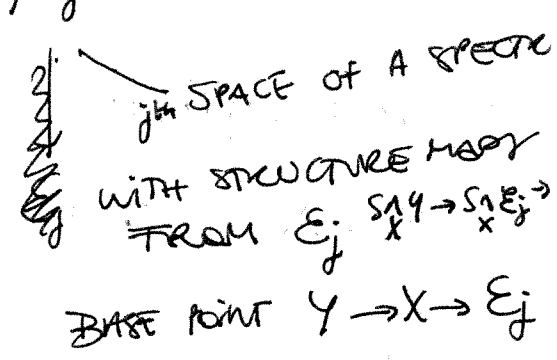 jth SPACE OF A SPECTR
WITH STRUCTURE MAPS
FROM Ej S∧Y → S∧Ej →
X X
BASE POINT Y → X → Ej